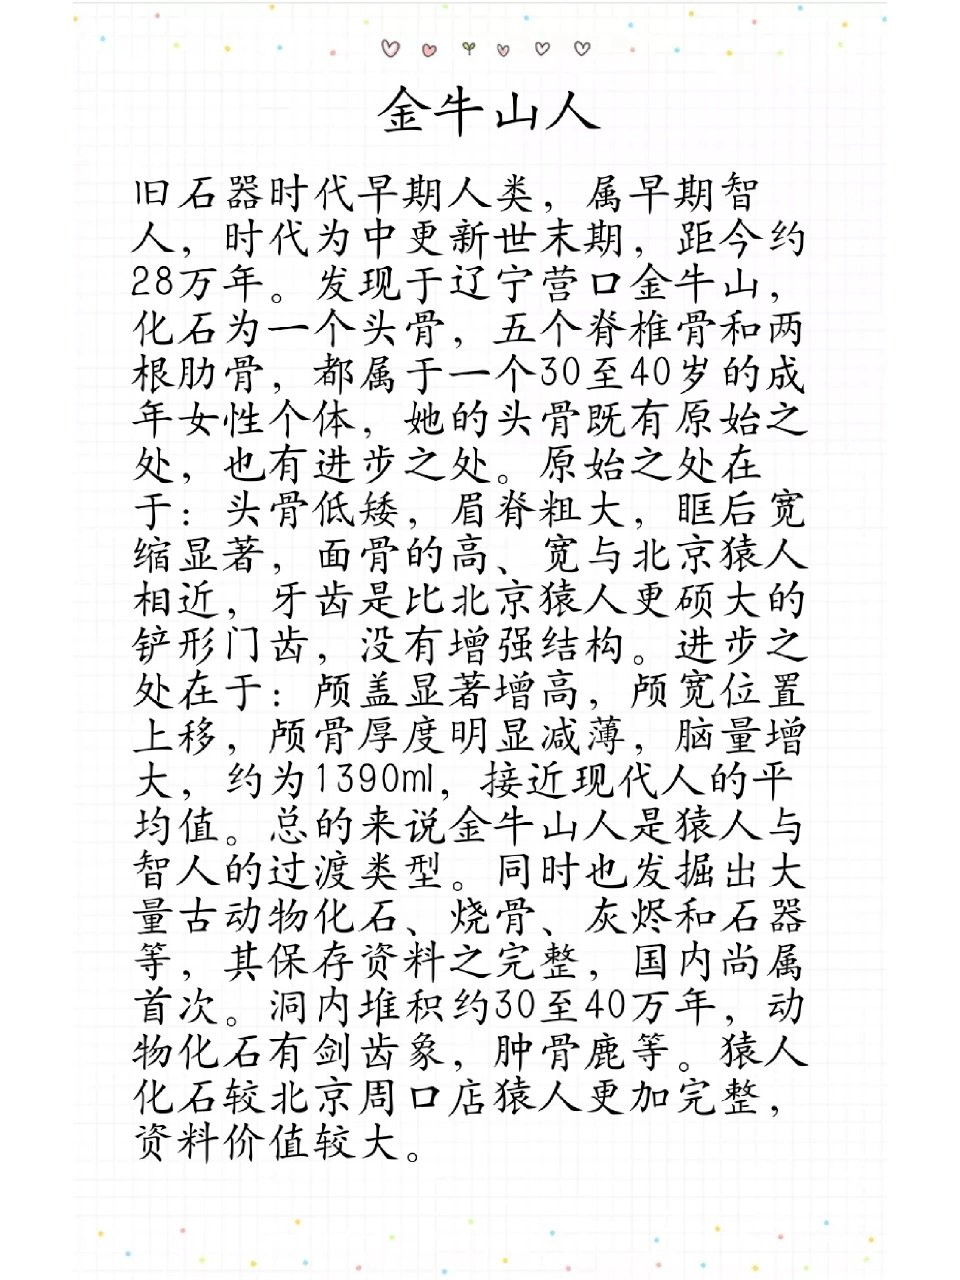 金牛山人
旧石器时代早期人类，属早期智
人，时代为中更新世末期，距今约
28万年。发现于辽宁营口金牛山，
化石为一个头骨，五个脊椎骨和两
根肋骨，都属于一个30至40岁的成
年女性个体，她的头骨既有原始之
处，也有进步之处。原始之处在
于：头骨低矮，眉脊粗大，眶后宽
缩显著，面骨的高、宽与北京猿人
相近，牙齿是比北京猿人更硕大的
铲形门齿，没有增强结构。进步之
处在于：颅盖显著增高，颅宽位置
上移，颅骨厚度明显减薄，脑量增
大，约为1390ml，接近现代人的平
均值。总的来说金牛山人是猿人与
智人的过渡类型。同时也发掘出大
量古动物化石、烧骨、灰烬和石器
等，其保存资料之完整，国内尚属
首次。洞内堆积约30至40万年，动
物化石有剑齿象，肿骨鹿等。猿人
化石较北京周口店猿人更加完整，
资料价值较大。